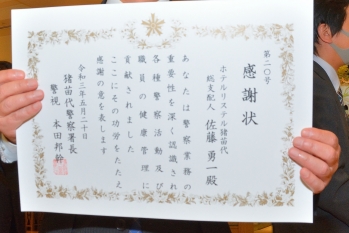 第二〇号
感謝状
ホテルリステル猪苗代
総支配人 佐藤勇一殿
あなたは警察業務の
重要性を深く認識され
各種警察活動及び
職員の健康管理に
貢献されました
ここにその功労をたたえ
感謝の意を表します
令和二年五月二十日
猪苗代警察署長
警視 本田邦幹